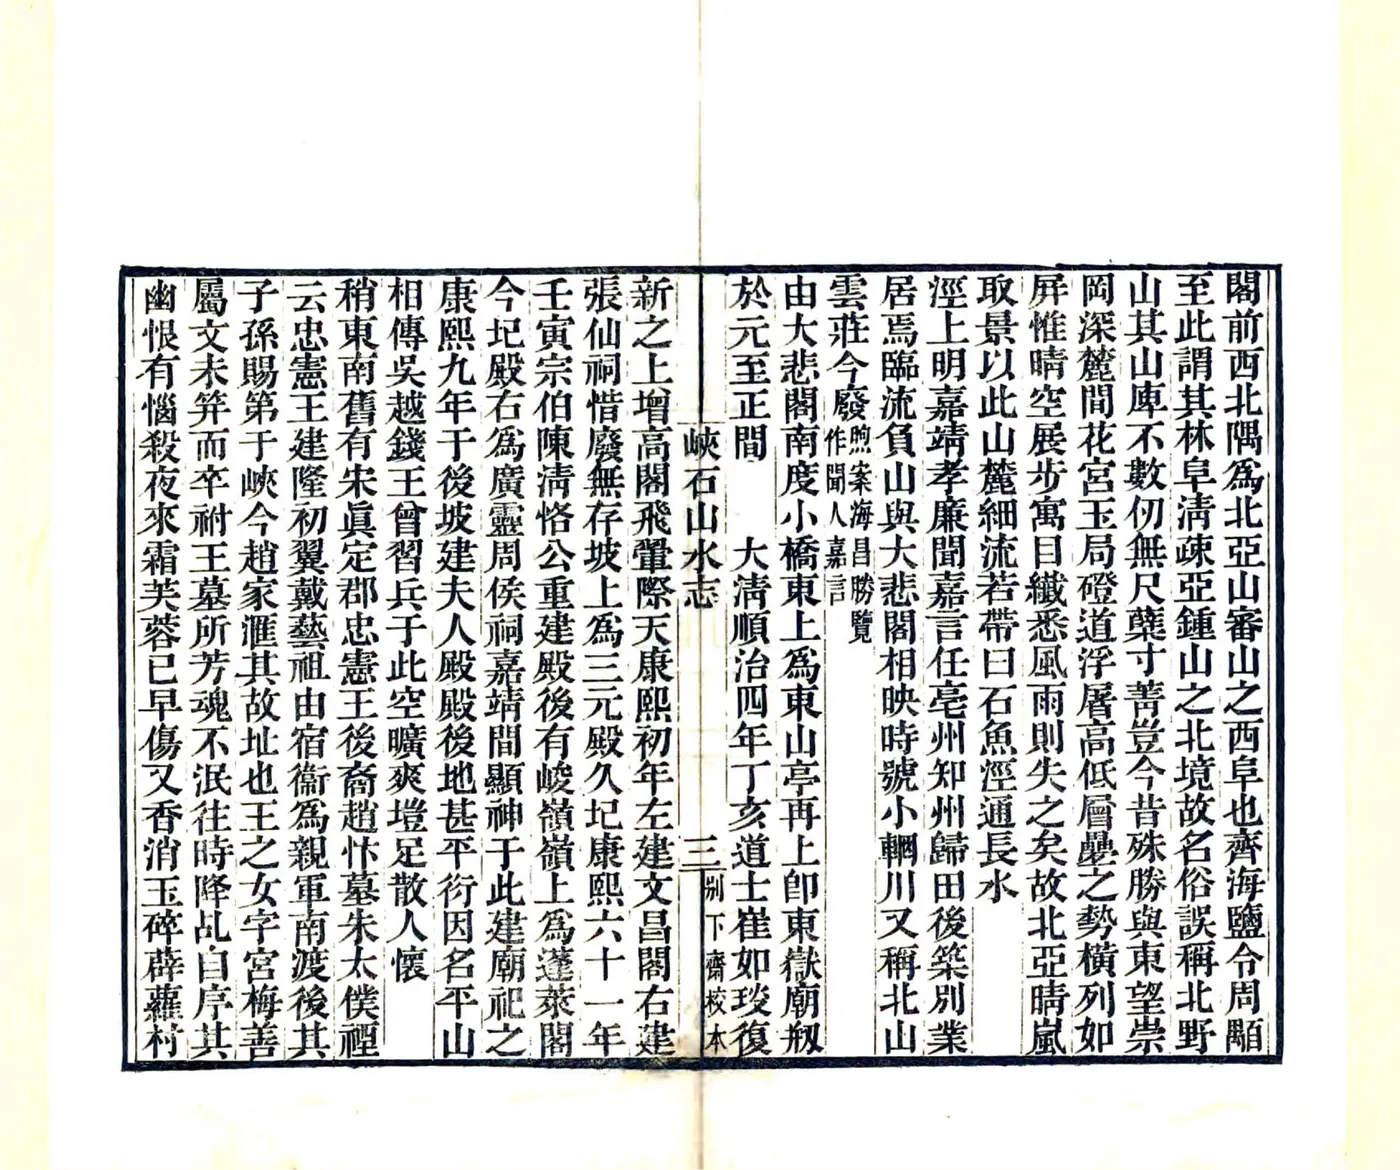 閣前西北隅爲北亞山審山之西阜也齊海鹽令周顒
至此謂其林阜淸疎亞鍾山之北境故名俗誤稱北野
山其山庳不數仞無尺蘗寸菁豈今昔殊勝與東望崇
岡深麓間花宮玉局磴道浮屠高低層壘之勢橫列如
屏惟晴空展步寓目纖悉風雨則失之矣故北亞晴嵐
取景以此山麓細流若帶曰石魚涇通長水
涇上明嘉靖孝廉聞嘉言任亳州知州歸田後築別業
居焉臨流負山與大悲閣相映時號小輞川又稱北山
雲莊今廢煦案海昌勝覽
作聞人嘉言
由大悲閣南度小橋東上爲東山亭再上卽東嶽廟剏
於元至正間 大淸順治四年丁亥道士崔如琰復
峽石山水志 三 別下齋校本
新之上增高閣飛翬際天康熙初年左建文昌閣右建
張仙祠惜廢無存坡上爲三元殿久圮康熙六十一年
壬寅宗伯陳淸恪公重建殿後有峻嶺嶺上爲蓬萊閣
今圮殿右爲廣靈周侯祠嘉靖間顯神于此建廟祀之
康熙九年于後坡建夫人殿殿後地甚平衍因名平山
相傳吳越錢王曾習兵于此空曠爽塏足散人懷
稍東南舊有宋眞定郡忠憲王後裔趙忭墓朱太僕禋
云忠憲王建隆初翼戴藝祖由宿衞爲親軍南渡後其
子孫賜第于峽今趙家滙其故址也王之女字宮梅善
屬文未笄而卒祔王墓所芳魂不泯往時降乩自序其
幽恨有惱殺夜來霜芙蓉已早傷又香消玉碎薜蘿村